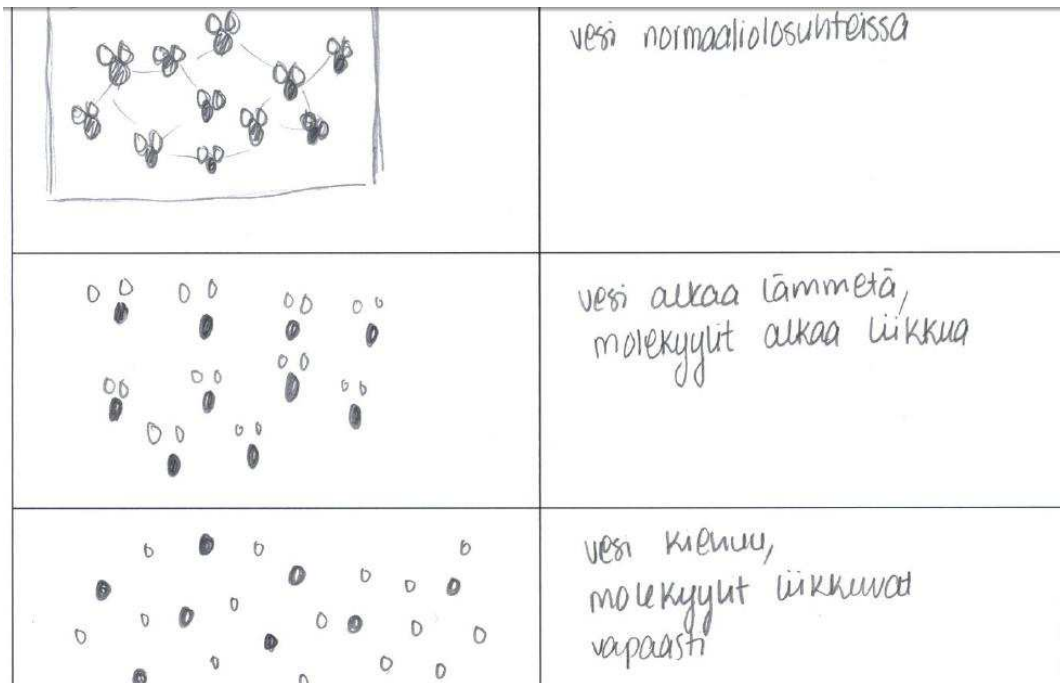 vesi normaaliolosuhteissa
vesi alkaa lämmetä,
molekyylit alkaa liikkua
vesi kiehuu,
molekyylit liikkuvat
vapaasti